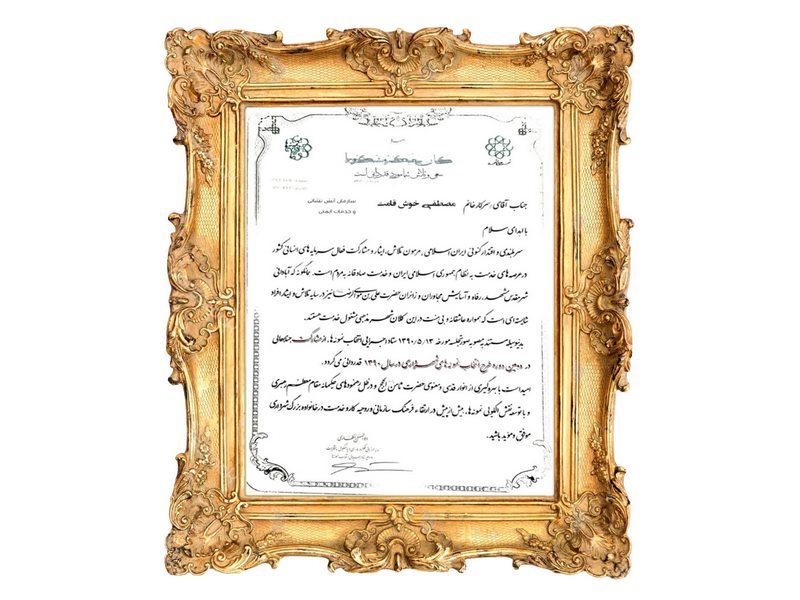 جناب آقای/سرکار خانم مصطفی خوش قامت
سازمان آتش نشانی
و خدمات ایمنی
با اهدای سلام
سربلندی و اقتدار کنونی ایران اسلامی، مرهون تلاش، ایثار و مشارکت فعال سرمایه های انسانی کشور
در عرصه های خدمت به نظام جمهوری اسلامی ایران و خدمت صادقانه به مردم است. چنانکه آبادانی
شهر مقدس مشهد، رفاه و آسایش مجاوران و زائران حضرت علی بن موسی الرضا نیز در سایه تلاش و ایثار افراد
شایسته ای است که همواره عاشقانه و بی منت در این کلان شهر مذهبی مشغول خدمت هستند.
بدینوسیله مستند به مصوبه صورتجلسه مورخه ۱۳۹۰/۵/۱۳ ستاد اجرایی انتخاب نمونه ها، از مشارکت جنابعالی
در دومین دوره طرح انتخاب نمونه های شهرداری در سال ۱۳۹۰ قدردانی می گردد.
امید است با بهره گیری از انوار قدسی و معنوی حضرت ثامن الحجج و در ظل رهنمودهای حکیمانه مقام معظم رهبری
و با توسعه نقش الگویی نمونه ها، بیش از پیش در ارتقاء فرهنگ سازمانی و روحیه کار و خدمت در خانواده بزرگ شهرداری
موفق و مؤید باشید.